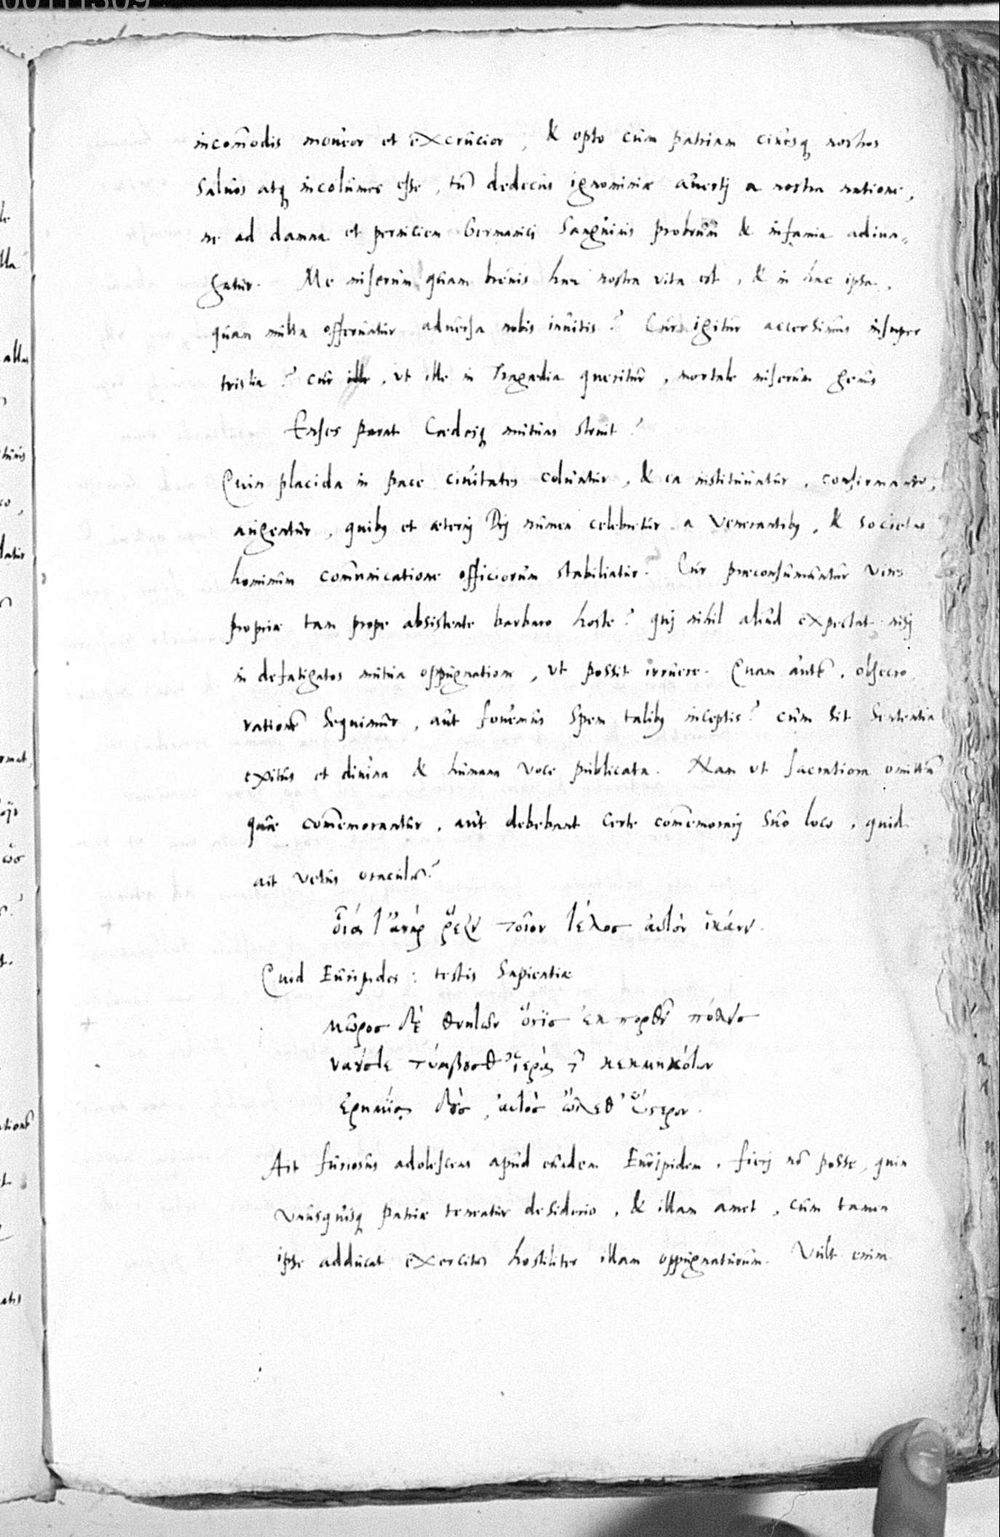 00111309
incom̄odis moueor et excrucior, & opto cùm patriam ciuesq nostros
saluos atq incolumes esse, tū dedecus ignominiæ auerti a nostra natione,
ne ad damna et perniciem Germanici sanguinis probrum & infamia adiun-
gatur. Me miserum quam breuis hæc nostra vita est, & in hac ipsa,
quam multa offeruntur aduersa nobis inuitis? Cur igitur accersimus insuper
tristia? cur ille, ut ille in Tragœdia queritur, mortale miserum genus
Enses parat Cædesq mutuas struit?
Quin placida in pace ciuitates coluntur, & ea instituuntur, confirmantur,
augentur, quibꝫ et æterni Dij numen celebretur a venerantibꝫ, & societas
hominum com̄unicatione officiorum stabiliatur? Cur præconsumuntur vires
propriæ tam prope absistente barbaro hoste? qui nihil aliud expectat nisi
in defatigatos mutua oppugnatione, ut possit irruere. Quam autē, obsecro
rationē sequimur, aut fouemus spem talibꝫ inceptis? cùm sit sententia
exitus et diuina & humana voce publicata. Nam ut sacratiora omittā
quæ com̄emorantur, aut debebant certe com̄emorari suo loco, quid
ait vetus oraculū?
ῥέζει τοῖον τέλος αὐτὸν ἱκάνει.
Quid Euripides: testis sapientiæ
μῶρος δὲ θνητῶν ὅστις ἐκπορθεῖ πόλεις
ναούς τε τύμβους θ' ἱερὰ τ κεκμηκότων
ἐρημίᾳ δοὺς, αὐτὸς ὤλεθ' ὕστερον.
Ait furiosus adolescens apud eundem Euripidem, fieri nō posse, quin
vnusquisq patriæ teneatur desiderio, & illam amet, cùm tamen
ipse adducat exercitus hostiliter illam oppugnaturum. Vult enim